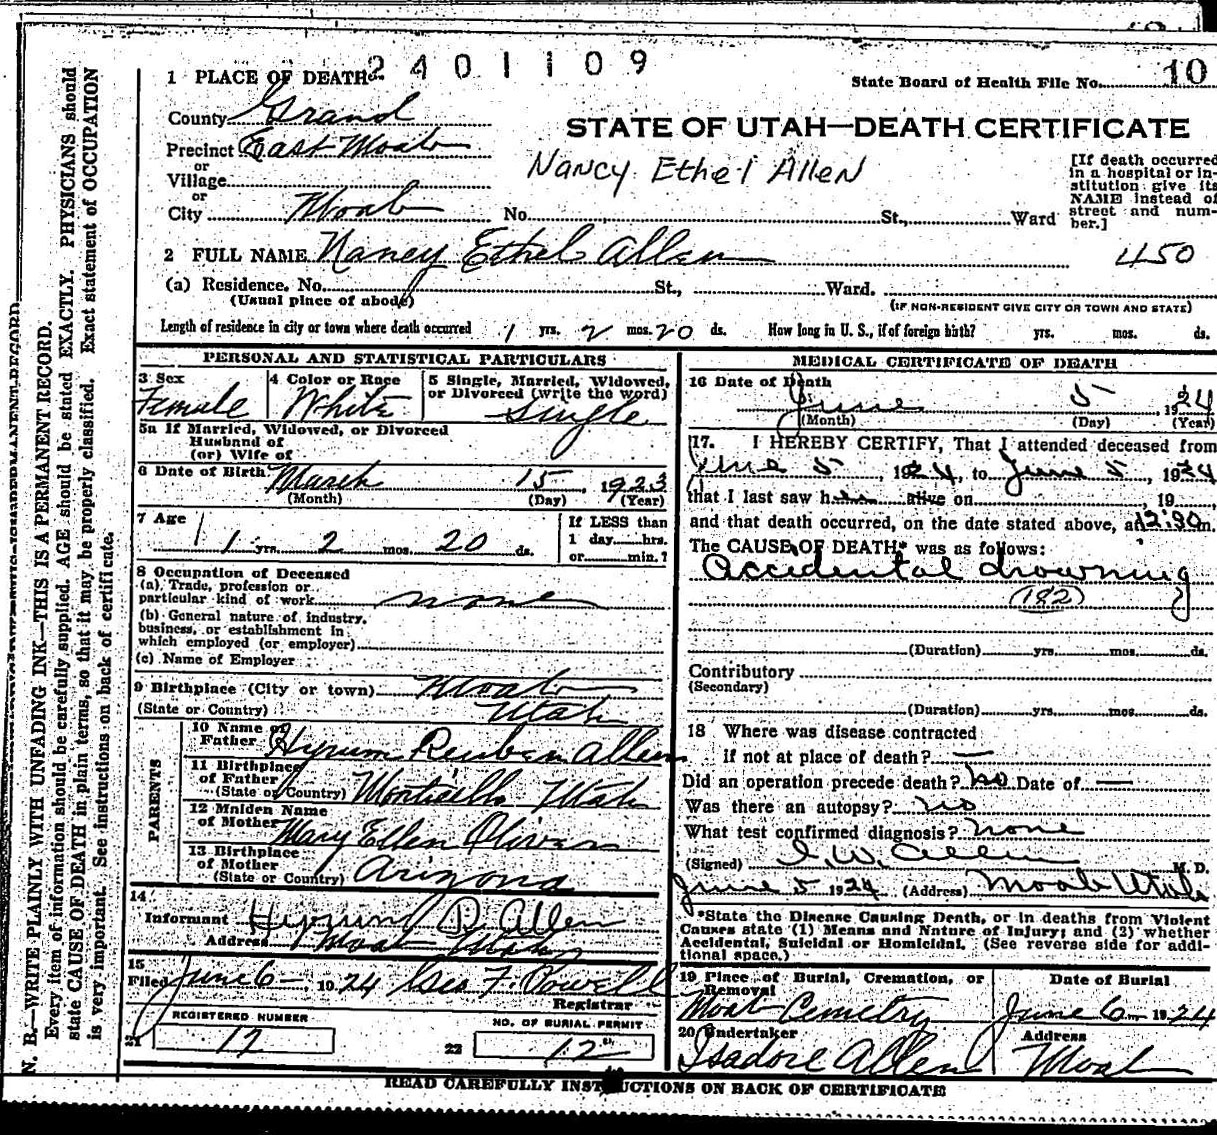 2401109
1 PLACE OF DEATH
State Board of Health File No. 10
County Grand
STATE OF UTAH—DEATH CERTIFICATE
Precinct East Moab
Nancy Ethel Allen
[If death occurred in a hospital or in-
stitution give its
NAME instead of
street and num-
ber.]
or
Village
or
City Moab No. St., Ward
2 FULL NAME Nancy Ethel Allen
450
(a) Residence. No. St., Ward.
(Usual place of abode)
(IF NON-RESIDENT GIVE CITY OR TOWN AND STATE)
Length of residence in city or town where death occurred 1 yrs. 2 mos. 20 ds. How long in U. S., if of foreign birth? yrs. mos. ds.
PERSONAL AND STATISTICAL PARTICULARS
3 Sex
Female
4 Color or Race
White
5 Single, Married, Widowed,
or Divorced (write the word)
Single
5a If Married, Widowed, or Divorced
Husband of
(or) Wife of
6 Date of Birth March 15, 1923
(Month) (Day) (Year)
7 Age
1 yrs. 2 mos. 20 ds.
If LESS than
1 day hrs.
or min.?
8 Occupation of Deceased
(a) Trade, profession or
particular kind of work none
(b) General nature of industry,
business, or establishment in
which employed (or employer)
(c) Name of Employer
9 Birthplace (City or town) Moab
(State or Country) Utah
PARENTS
10 Name of
Father Hyrum Reuben Allen
11 Birthplace
of Father
(State or Country) Monticello Utah
12 Maiden Name
of Mother Mary Ellen Oliver
13 Birthplace
of Mother
(State or Country) Arizona
14
Informant Hyrum R Allen
Address Moab Utah
15
Filed June 6, 1924 Geo F. Powell
Registrar
REGISTERED NUMBER
21 12
NO. OF BURIAL PERMIT
22 12th
MEDICAL CERTIFICATE OF DEATH
16 Date of Death
June 5, 1924
(Month) (Day) (Year)
17. I HEREBY CERTIFY, That I attended deceased from
June 5, 1924, to June 5, 1924
that I last saw h alive on 19
and that death occurred, on the date stated above, at 12:30 m.
The CAUSE OF DEATH* was as follows:
Accidental drowning
(182)
(Duration) yrs. mos. ds.
Contributory
(Secondary)
(Duration) yrs. mos. ds.
18 Where was disease contracted
if not at place of death? —
Did an operation precede death? no Date of —
Was there an autopsy? no
What test confirmed diagnosis? none
(Signed) I. W. Allen M. D.
June 5 1924 (Address) Moab Utah
*State the Disease Causing Death, or in deaths from Violent
Causes state (1) Means and Nature of Injury; and (2) whether
Accidental, Suicidal or Homicidal. (See reverse side for addi-
tional space.)
19 Place of Burial, Cremation, or
Removal
Moab Cemetry
Date of Burial
June 6 1924
20 Undertaker
Isadore Allen
Address
Moab
READ CAREFULLY INSTRUCTIONS ON BACK OF CERTIFICATE
N. B.—WRITE PLAINLY WITH UNFADING INK—THIS IS A PERMANENT RECORD.
Every item of information should be carefully supplied. AGE should be stated EXACTLY. PHYSICIANS should
state CAUSE OF DEATH in plain terms, so that it may be properly classified. Exact statement of OCCUPATION
is very important. See instructions on back of certificate.